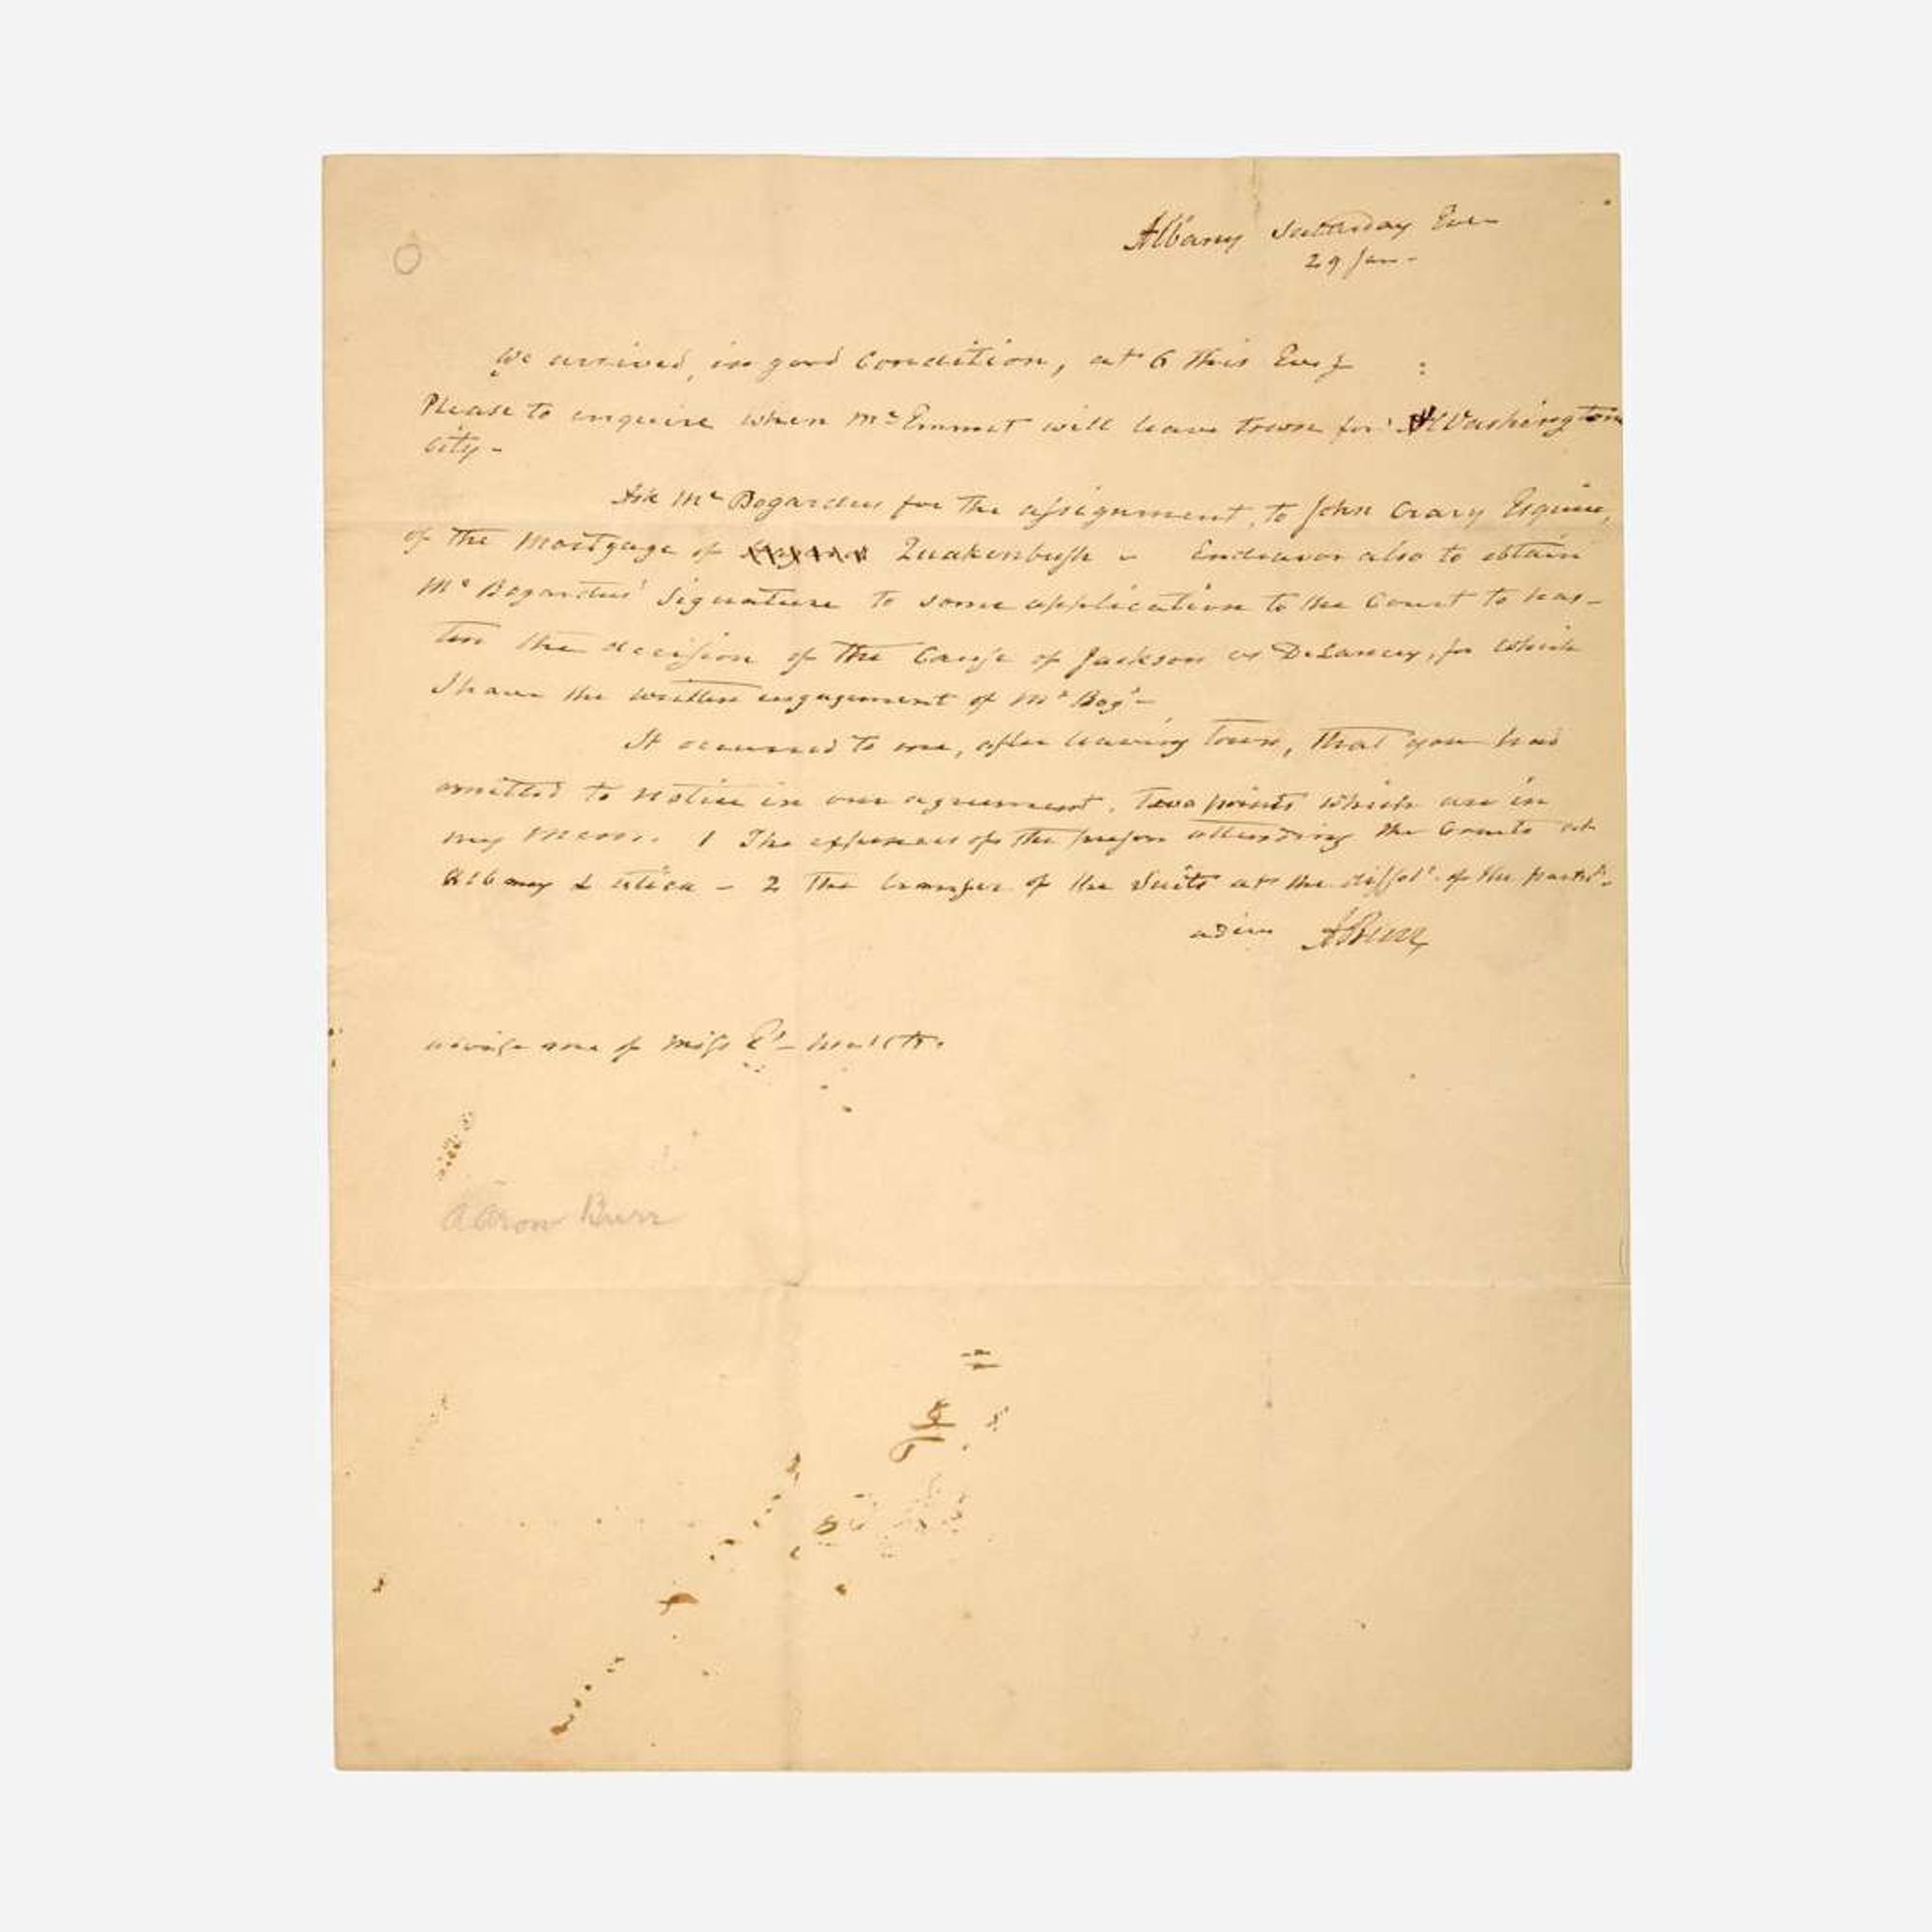 Albany Saturday Eve
29 Jan -
We arrived, in good Condition, at 6 this Eveg :
Please to enquire when Mr Emmet will leave town for Washington
City -
Ask Mr Bogardus for the assignment, to John Crary Esquire,
of the Mortgage of Quakenbush - Endeavor also to obtain
Mr Bogardus' Signature to some application to the Court to has-
ten the decision of the Cause of Jackson vs DeLancey, for which
I have the written engagement of Mr Bogs -
It occurred to me, after leaving town, that you had
omitted to notice in our agreement, Two points which are in
my Mem. 1 The expenses of the person attending the Courts at
Albany & Utica - 2 The transfer of the Suits at the dissoln. of the partn.
adieu A Burr
advise me of Miss health.
Aaron Burr